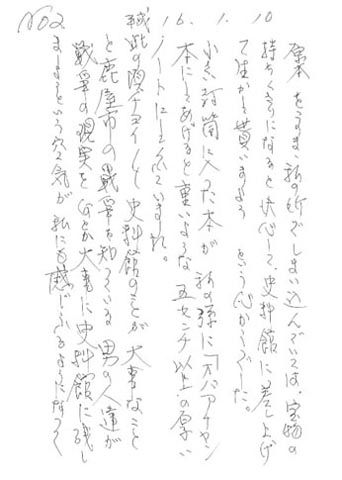 No2
16. 1. 10
原本をこのまま私の所でしまい込んでいては、宝物の
持ちぐさりになると決心して、史料館に差し上げ
て生かして貰いましょう という心からでした。
小さい封筒に入った本が 私の孫に「オバアチャン
本にしてあげると重いような 五センチ以上の厚い
ノートにしてくれていました。
誠此の頃チョイ／＼と史料館のことが 大事なこと
と鹿屋市の戦争を知っている 男の人達が
戦争の現実を 何とか大事に史料館に残し
ましょうという空気が 私にも感じられるようになって